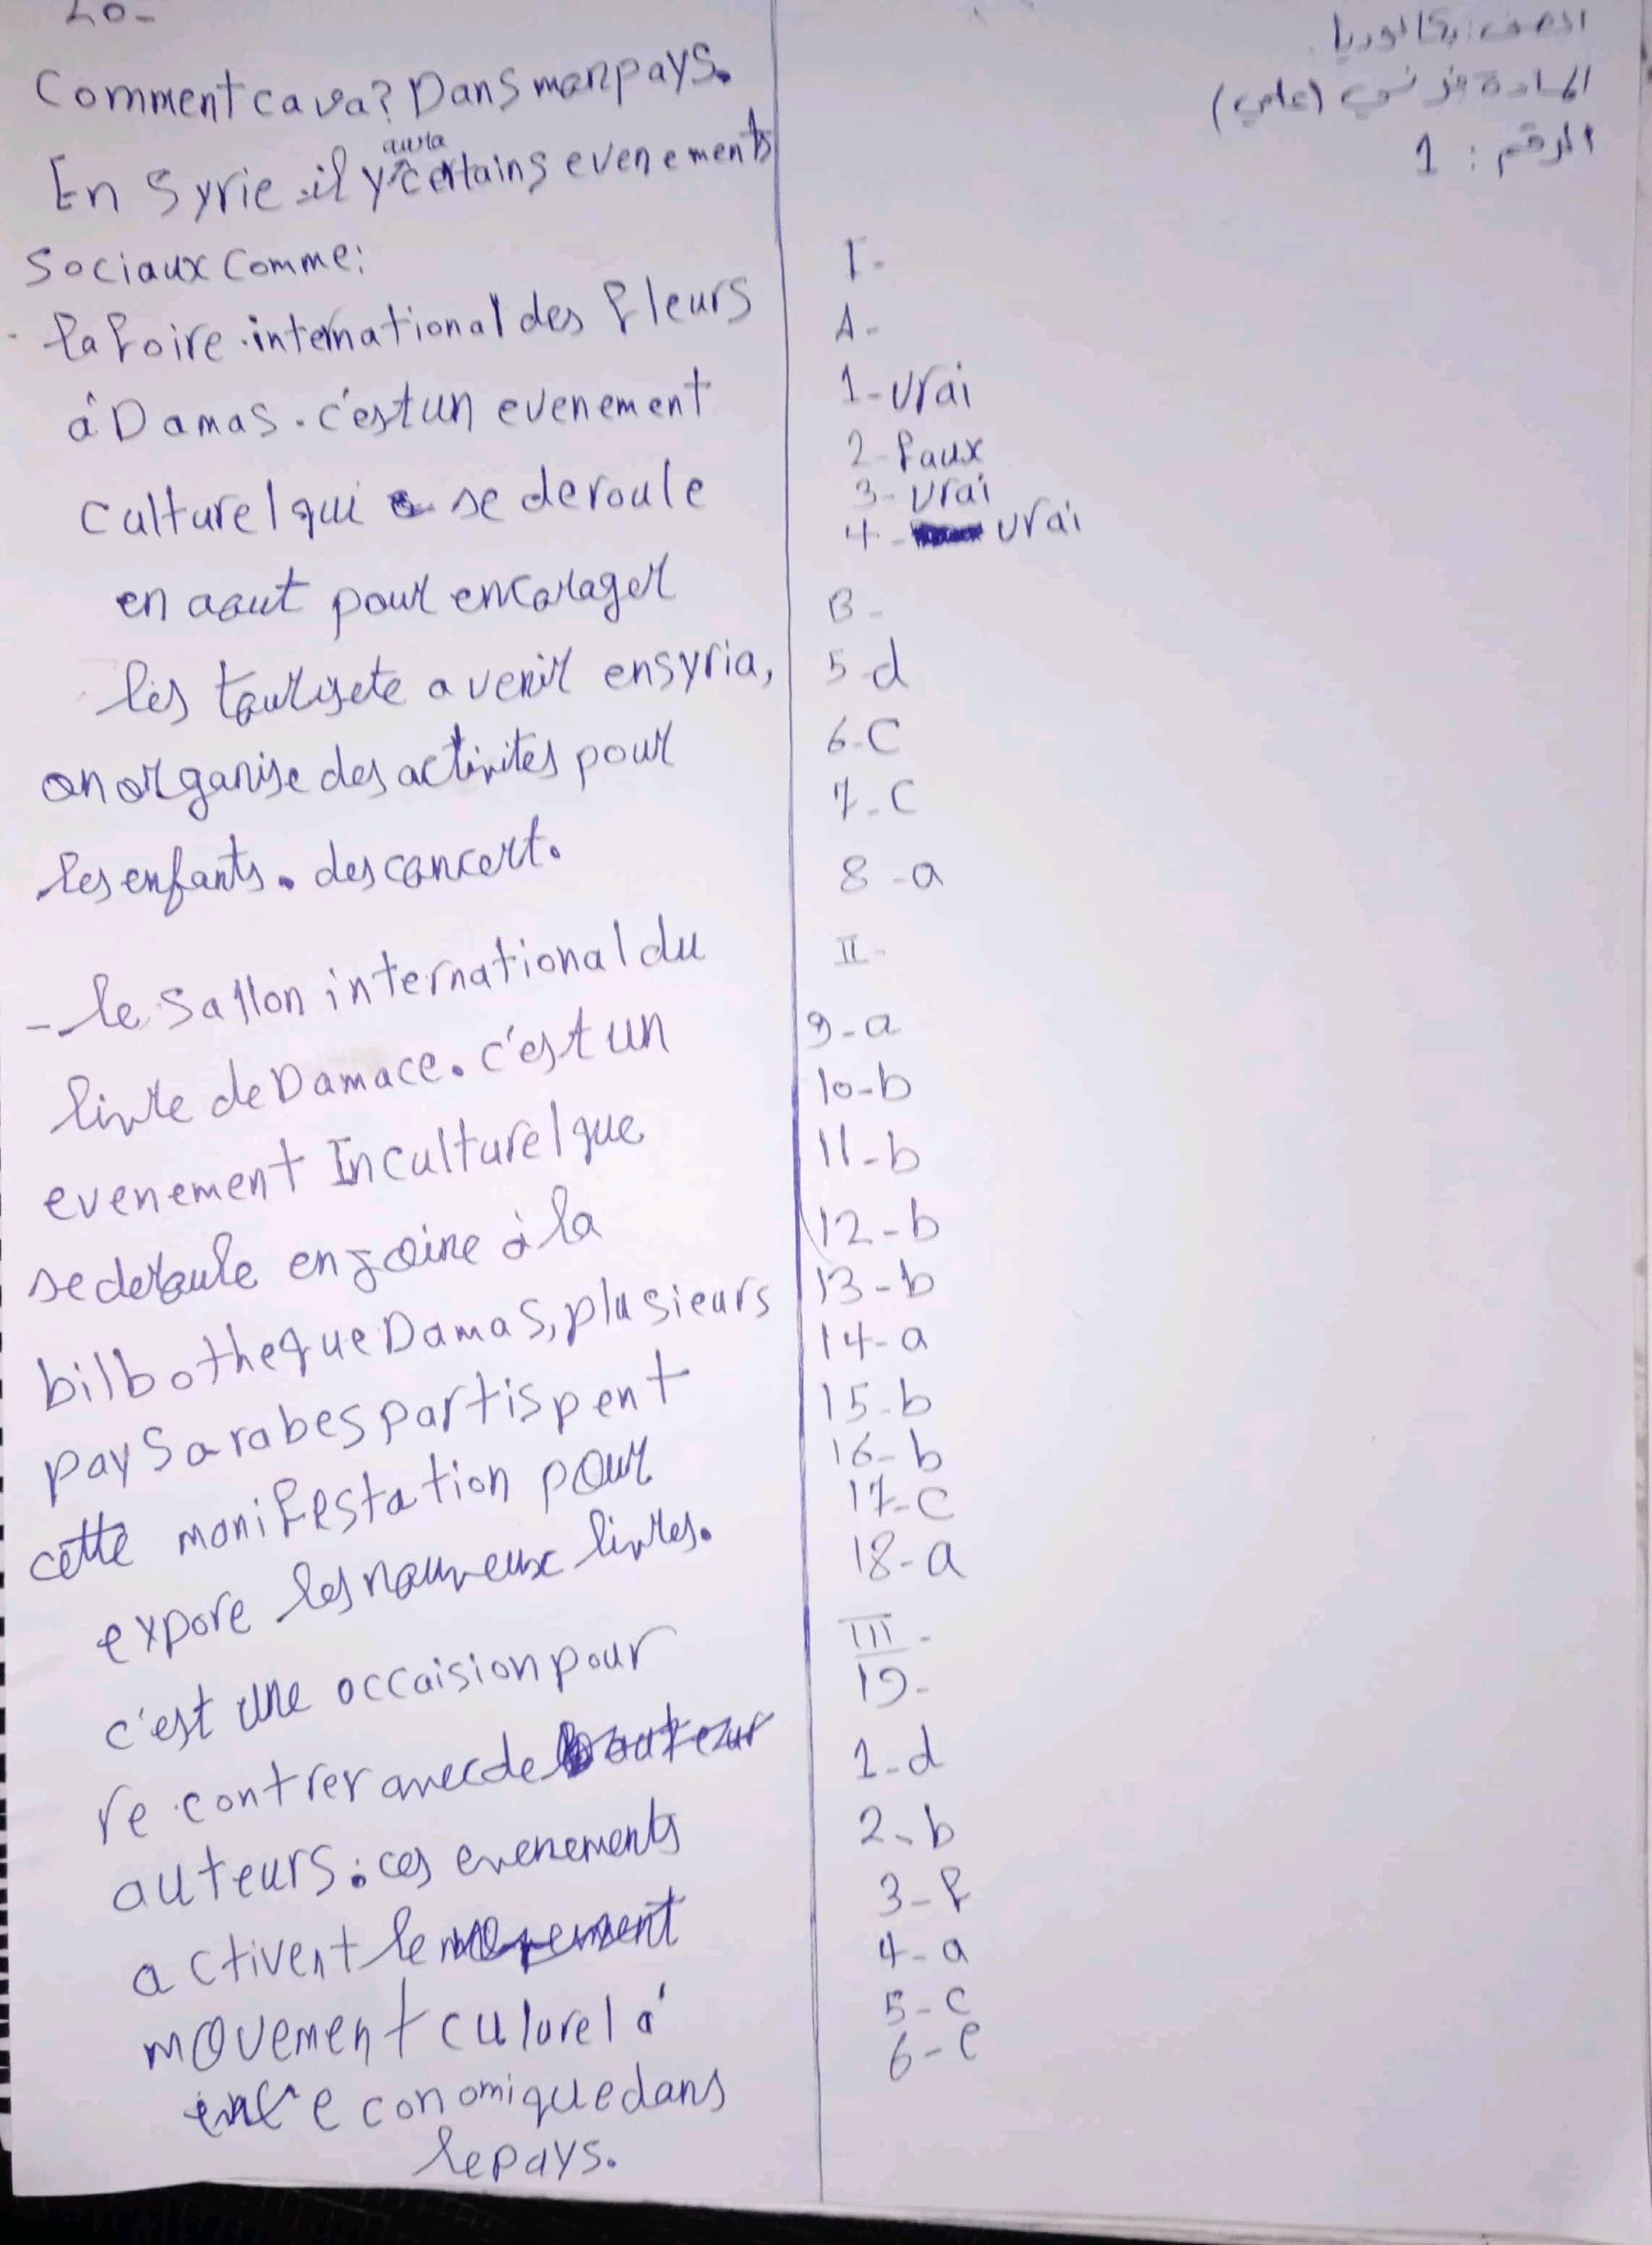 الصف: بكالوريا
المادة فرنسي (علمي)
الرقم : 1
I-
A-
1-vrai
2-Faux
3-vrai
4- vrai
B-
5-d
6-C
7-C
8-a
II-
9-a
10-b
11-b
12-b
13-b
14-a
15-b
16-b
17-C
18-a
III-
19-
1-d
2-b
3-f
4-a
5-c
6-e
20-
Comment ca va? Dans mon pays.
En Syrie il y aura certains evenements
Sociaux Comme:
- la foire international des fleurs
à Damas. c'est un evenement
culturel qui se deroule
en aout pour encorager
les tourisete a venir en syria,
on organise des activites pour
les enfants. des concert.
- le sallon international du
livre de Damace. c'est un
evenement In culturel que
se deroule en joine à la
bilbotheque Damas, plusieurs
pays arabes partispent
cette manifestation pour
expore les nouveux livres.
c'est une occaision pour
re contrer avec de
auteurs. ces evenements
activent le
movement culurel
economique dans
le pays.